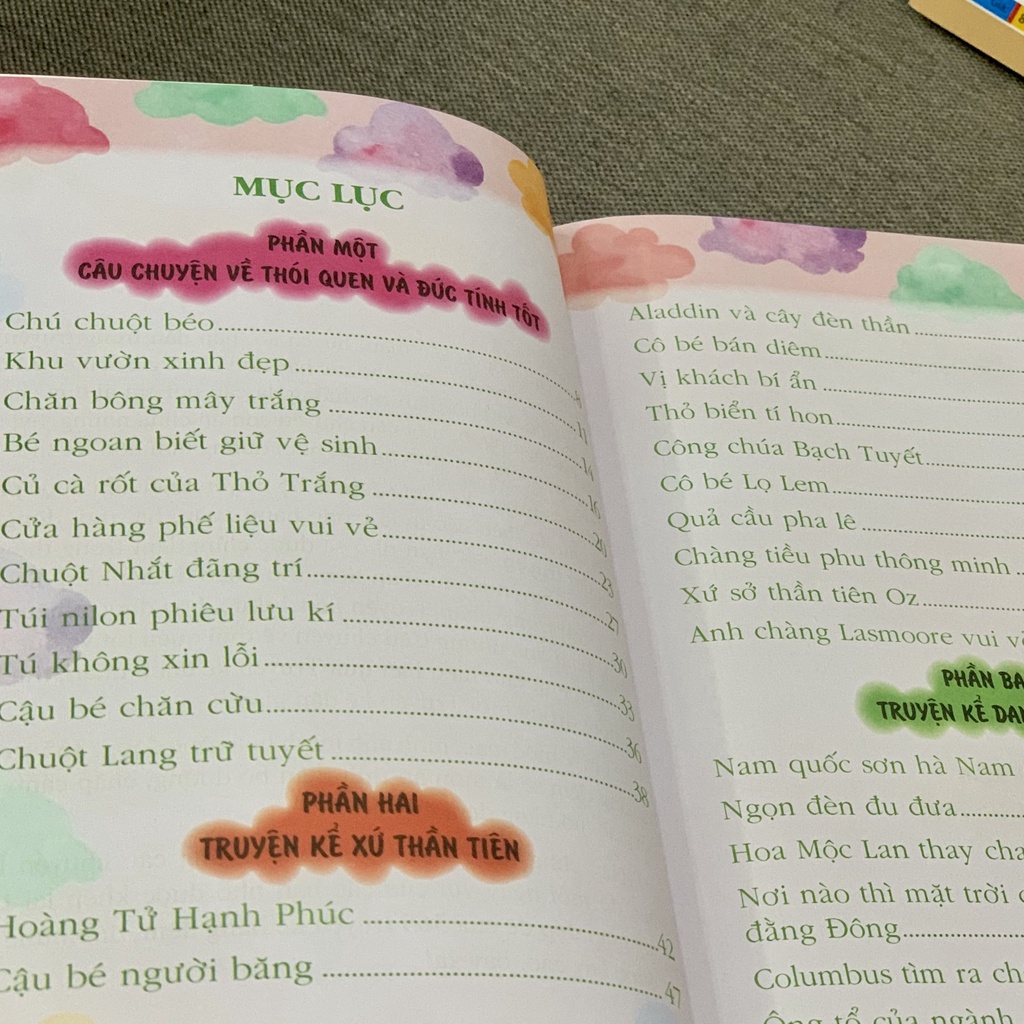 MỤC LỤC
PHẦN MỘT
CÂU CHUYỆN VỀ THÓI QUEN VÀ ĐỨC TÍNH TỐT
Chú chuột béo
Khu vườn xinh đẹp
Chăn bông mây trắng 11
Bé ngoan biết giữ vệ sinh 14
Củ cà rốt của Thỏ Trắng 16
Cửa hàng phế liệu vui vẻ 20
Chuột Nhắt đãng trí 23
Túi nilon phiêu lưu kí 27
Tú không xin lỗi 30
Cậu bé chăn cừu 33
Chuột Lang trữ tuyết 36
38
PHẦN HAI
TRUYỆN KỂ XỨ THẦN TIÊN
Hoàng Tử Hạnh Phúc 42
Cậu bé người băng 47
Aladdin và cây đèn thần
Cô bé bán diêm
Vị khách bí ẩn
Thỏ biển tí hon
Công chúa Bạch Tuyết
Cô bé Lọ Lem
Quả cầu pha lê
Chàng tiều phu thông minh
Xứ sở thần tiên Oz
Anh chàng Lasmoore vui
PHẦN BA
TRUYỆN KỂ
Nam quốc sơn hà Nam
Ngọn đèn đu đưa
Hoa Mộc Lan thay cha
Nơi nào thì mặt trời
đằng Đông
Columbus tìm ra
Ông tổ của ngành